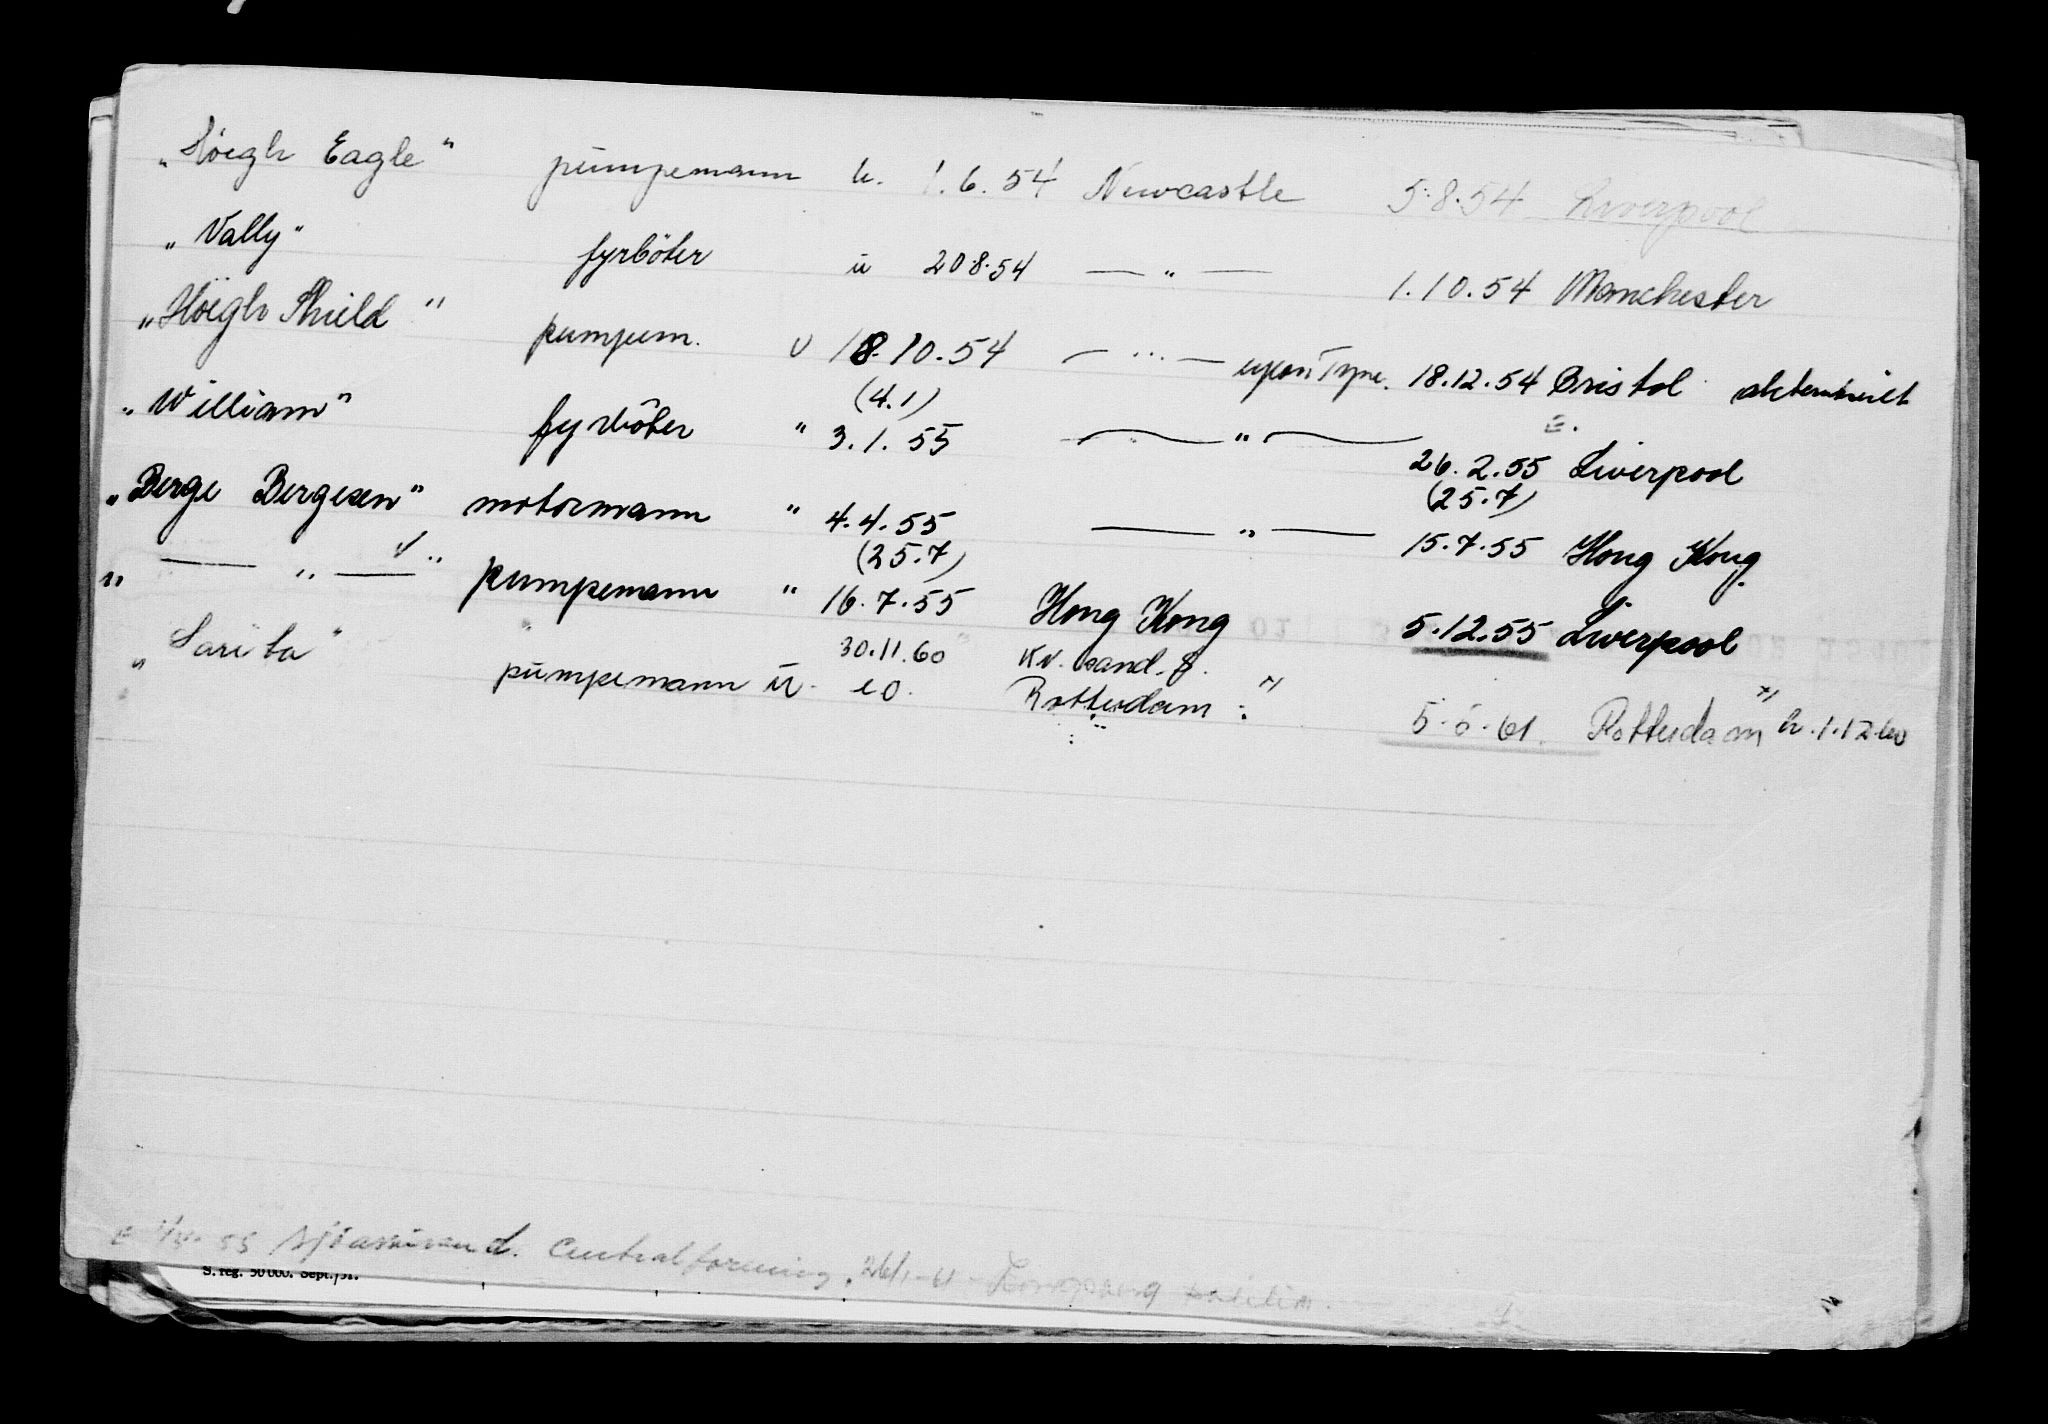 „Höegh Eagle" pumpemann u. 1.6.54 Newcastle 5.8.54 Liverpool
„Vally" fyrböter u 20.8.54 — " — 1.10.54 Manchester
„Höegh Shield" pumpem. u 18.10.54 — " — upon Tyne. 18.12.54 Bristol
(4.1)
„William" fyrböter " 3.1.55 — " — 26.2.55 Liverpool
(25.7)
„Berge Bergesen" motormann " 4.4.55 — " — 15.7.55 Hong Kong.
(25.7)
„ — " — " pumpemann " 16.7.55 Hong Kong 5.12.55 Liverpool
30.11.60
„Sarita" pumpemann u. Rotterdam x) 61. Rotterdam x) h. 1.12.60
55 centralforening.
S. reg. 50000. Sept./51.